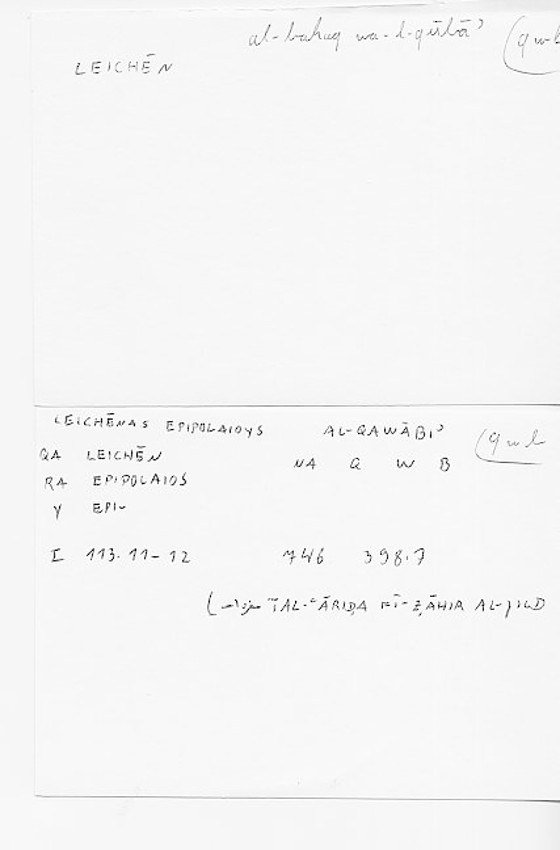 al-bahaq wa-l-qūbāʾ (qwb
LEICHĒN
LEICHĒNAS EPIPOLAIOYS AL-QAWĀBIʾ (qwb
QA LEICHĒN NA Q W B
RA EPIPOLAIOS
Y EPI-
I 113.11-12 746 398.7
AL-ʿĀRIḌA FĪ-ẒĀHIR AL-JILD